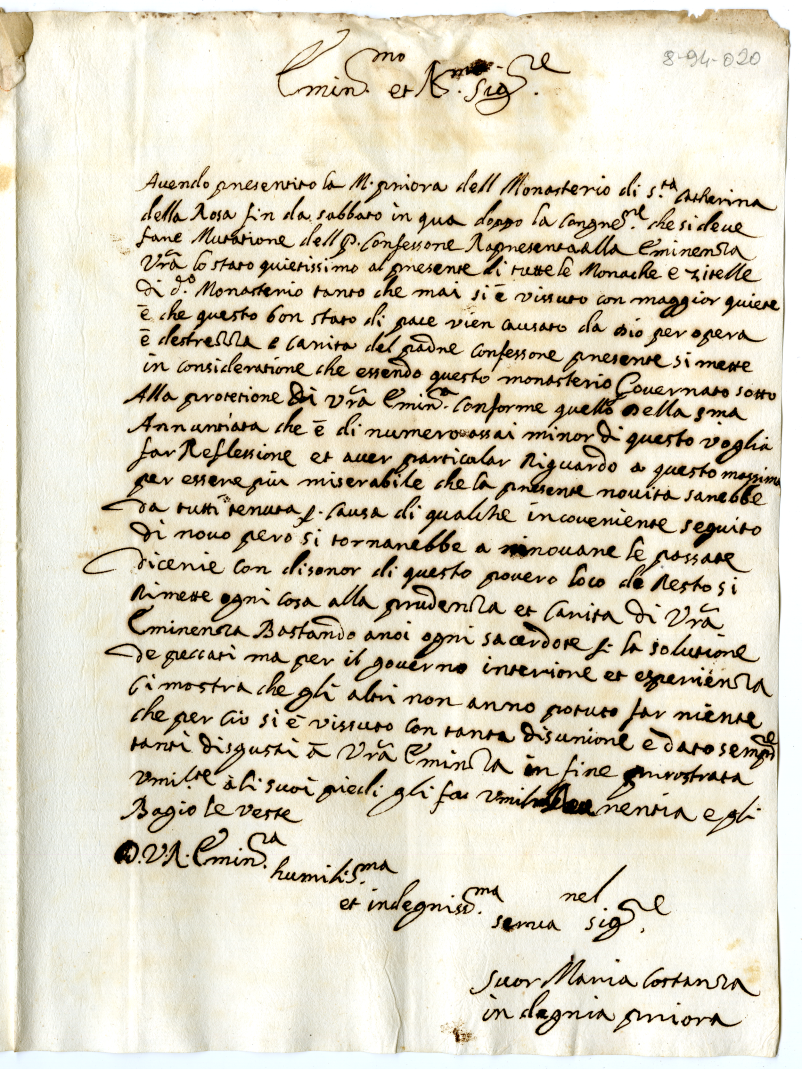 8-94-020
Emin.mo et R.mo Sig.re
Avendo presentito la M. priora dell Monasterio di s.ta Catherina
della Rosa fin da sabbato in qua doppo la Congre.ne che si deve
fare Mutatione dell P. Confessore Rapresenta alla Eminenza
Vrã lo stato quietissimo al presente di tutte le Monache e zitelle
di d.o Monasterio tanto che mai si é vissuto con maggior quiete
é che questo bon stato di pace vien causato da Dio per opera
é destrezza e carita del padre confessore presente si mette
in consideratione che essendo questo monasterio Governato sotto
Alla protetione di Vrã Emin.a conforme quello della sma
Annuntiata che é di numero assai minor di questo voglia
far Reflessione et aver particular Riguardo a questo massime
per essere piu miserabile che la presente novita sarebbe
da tutti tenuta p. causa di qualche incoveniente seguito
di novo pero si tornarebbe a rinovare le passate
dicerie con disonor di questo povero loco de Resto si
Rimette ogni cosa alla prudenza et carita di Vrã
Eminenza Bastando anoi ogni sacerdote p. la solutione
de peccati ma per il governo interiore et esperienza
ci mostra che gli altri non anno potuto far niente
che per Ciò si é vissuto con tanta disunione e dato sempre
tanti disgusti á Vrã Eminza in fine prostrata
vmil.te á li suoi piedi gli fa nentia e gli
Bagio le veste
D.V.R. Emin.za
humilis.ma
et indegniss.ma serva nel Sig.re
Suor Maria Costanza
in degnia priora